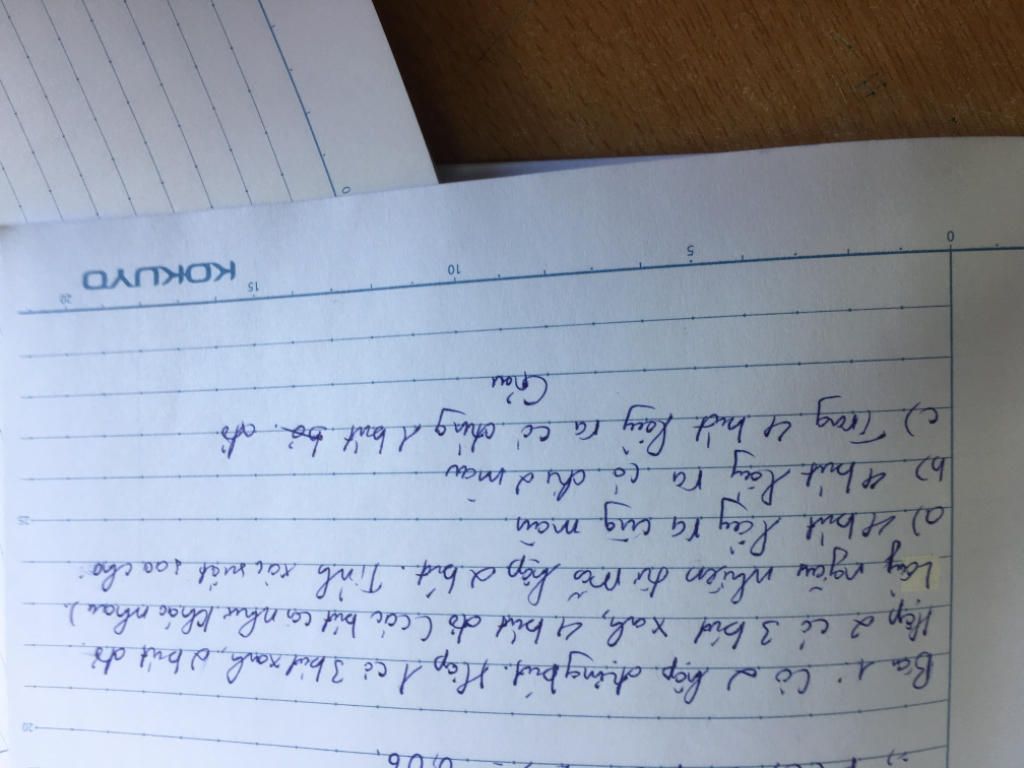 Bài 1: Có 2 hộp đựng bút. Hộp 1 có 3 bút xanh, 2 bút đỏ.
Hộp 2 có 3 bút xanh, 4 bút đỏ (các bút coi như khác nhau).
Lấy ngẫu nhiên từ mỗi hộp 2 bút. Tính xác suất sao cho:
a) 4 bút lấy ra cùng màu
b) 4 bút lấy ra có đủ 2 màu
c) Trong 4 bút lấy ra có đúng 2 bút đỏ
Giải
0 5 10 15 20
KOKUYO
20
25
0